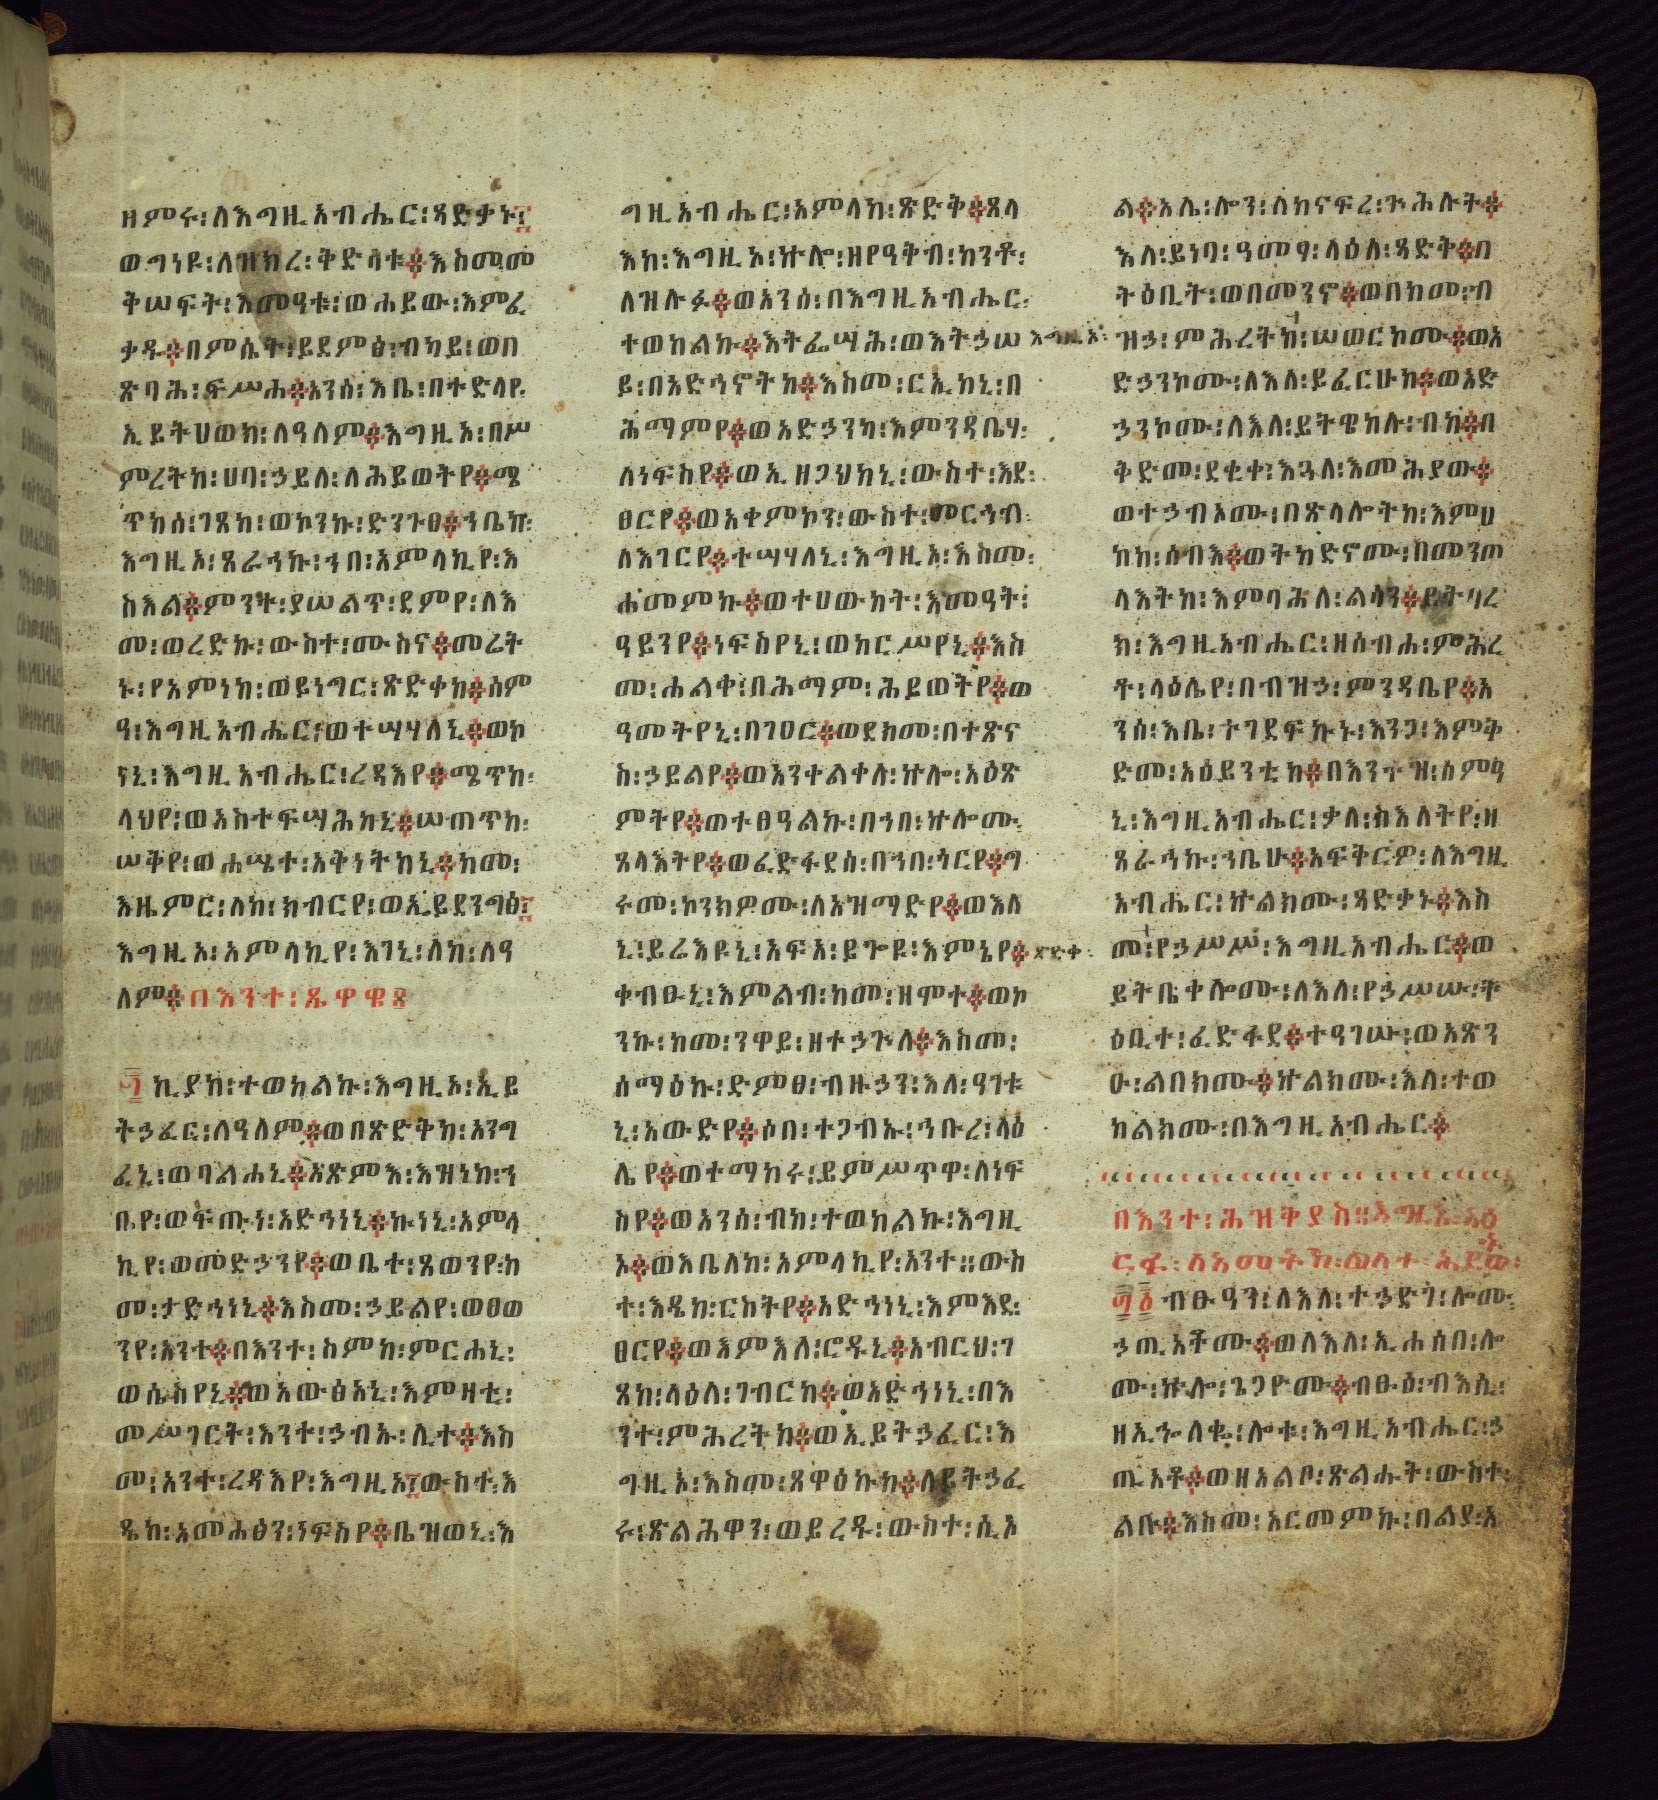 ዘምሩ፡ለእግዚአብሔር፡ጻድቃኑ፤
ወግነዩ፡ለዝክረ፡ቅድሳቱ፨እስመመ
ቅሠፍት፡እመዓቱ፡ወሐይው፡እምፈ
ቃዱ፨በምሴት፡ይደምፅ፡ብካይ፡ወበ
ጽባሕ፡ፍሥሐ፨አንሰ፡እቤ፡በተድላየ
ኢይትሀወክ፡ለዓለም፨እግዚኦ፡በሥ
ምረትከ፡ሀባ፡ኃይለ፡ለሕይወትየ፨ሜ
ጥከሰ፡ገጸከ፡ወኮንኩ፡ድንጉፀ፨ኀቤከ፡
እግዚኦ፡ጸራኅኩ፡ኀበ፡አምላኪየ፡እ
ስእል፨ምንት፡ያሠልጥ፡ደምየ፡ለእ
መ፡ወረድኩ፡ውስተ፡ሙስና፨መሬት
ኑ፡የአምነከ፡ወይነግር፡ጽድቀከ፨ሰም
ዓ፡እግዚአብሔር፡ወተሣሃለኒ፨ወኮ
ነኒ፡እግዚአብሔር፡ረዳእየ፨ሜጥከ፡
ላህየ፡ወአስተፍሣሕከኒ፨ሠጠጥከ፡
ሠቅየ፡ወሐሤተ፡አቅነትከኒ፨ከመ፡
እዜምር፡ለከ፡ክብርየ፡ወኢይደንግፅ፤
እግዚኦ፡አምላኪየ፡እገኒ፡ለከ፡ለዓ
ለም፨በእንተ፡ጼዋዌ፨
፴ኪያከ፡ተወከልኩ፡እግዚኦ፡ኢይ
ትኃፈር፡ለዓለም፨ወበጽድቅከ፡አንግ
ፈኒ፡ወባልሐኒ፨አጽምእ፡እዝነከ፡ኀ
ቤየ፡ወፍጡነ፡አድኅነኒ፨ኩነኒ፡አምላ
ኪየ፡ወመድኃንየ፨ወቤተ፡ጸወንየ፡ከ
መ፡ታድኅነኒ፨እስመ፡ኃይልየ፡ወፀወ
ንየ፡አንተ፨በእንተ፡ስምከ፡ምርሐኒ፡
ወሴስየኒ፨ወአውፅአኒ፡እምዛቲ፡
መሥገርት፡እንተ፡ኃብኡ፡ሊተ፨እስ
መ፡አንተ፡ረዳእየ፡እግዚኦ፤ውስተ፡እ
ዴከ፡አመሐፅን፡ነፍስየ፨ቤዝወኒ፡እ
ግዚአብሔር፡አምላከ፡ጽድቅ፨ጸላ
እከ፡እግዚኦ፡ኵሎ፡ዘየዓቅብ፡ከንቶ፡
ለዝሉፉ፨ወአንሰ፡በእግዚአብሔር፡
ተወከልኩ፨እትፌሣሕ፡ወእትኃሠ እግዚኦ፡
ይ፡በአድኅኖትከ፨እስመ፡ርኢከኒ፡በ
ሕማምየ፨ወአድኃንካ፡እምንዳቤሃ፡
ለነፍስየ፨ወኢዘጋህከኒ፡ውስተ፡እደ፡
ፀርየ፨ወአቀምኮን፡ውስተ፡መርኅብ፡
ለእገርየ፨ተሣሃለኒ፡እግዚኦ፡እስመ፡
ሐመምኩ፨ወተሀውከት፡እመዓት፡
ዓይንየ፨ነፍስየኒ፡ወከርሥየኒ፨እስ
መ፡ሐልቀ፡በሕማም፡ሕይወትየ፨ወ
ዓመትየኒ፡በገዐር፨ወደክመ፡በተጽና
ስ፡ኃይልየ፨ወአንተልቀለ፡ኵሎ፡አዕጽ
ምትየ፨ወተፀዓልኩ፡በኀበ፡ኵሎሙ፡
ጸላእትየ፨ወፈድፋደሰ፡በኀበ፡ጎርየ፨ግ
ሩመ፡ኮንክዎሙ፡ለአዝማድየ፨ወእለ
ኒ፡ይሬእዩኒ፡አፍአ፡ይጐዩ፡እምኔየ፨ጽድቀ፡
ቀብፁኒ፡እምልብ፡ከመ፡ዘሞተ፨ወኮ
ንኩ፡ከመ፡ንዋይ፡ዘተኃጕለ፨እስመ፡
ሰማዕኩ፡ድምፀ፡ብዙኃን፡እለ፡ዓገቱ
ኒ፡አውድየ፨ዕበ፡ተጋብኡ፡ኅቡረ፡ላዕ
ሌየ፨ወተማከሩ፡ይምሥጥዋ፡ለነፍ
ስየ፨ወአንሰ፡ብከ፡ተወከልኩ፡እግዚ
ኦ፨ወእቤለከ፡አምላኪየ፡አንተ፡፡ውስ
ተ፡እዴከ፡ርስትየ፨አድኅነኒ፡እምእደ፡
ፀርየ፨ወእምእለ፡ሮዱኒ፨አብርህ፡ገ
ጸከ፡ላዕለ፡ገብርከ፨ወአድኅነኒ፡በእ
ንተ፡ምሕረትከ፨ወኢይትኃፈር፡እ
ግዚኦ፡እስመ፡ጸዋዕኩከ፨ለይትኃፈ
ሩ፡ጽልሕዋን፡ወይረዱ፡ውስተ፡ሲኦ
ል፨አሌ፡ሎን፡ለከናፍረ፡ጕሕሉት፨
እለ፡ይነባ፡ዓመፃ፡ላዕለ፡ጻድቅ፨በ
ትዕቢት፡ወበመንኖ፨ወበከመ፡ብ
ዝኃ፡ምሕረትከ፡ሠወርኮሙ፨ወአ
ድኃንኮሙ፡ለእለ፡ይፈርሁከ፨ወአድ
ኃንኮሙ፡ለእለ፡ይትዌከሉ፡ብከ፨በ
ቅድመ፡ደቂቀ፡እጓለ፡እመሕያው፨
ወተኃብኦሙ፡በጽላሎትከ፡እምሀ
ከከ፡ሰብእ፨ወትከድኖሙ፡በመንጦ
ላእትከ፡እምባሕለ፡ልሳን፨ይትባረ
ክ፡እግዚአብሔር፡ዘሰብሐ፡ምሕረ
ቶ፡ላዕሌየ፡በብዝኃ፡ምንዳቤየ፨አ
ንሰ፡እቤ፡ተገደፍኩኑ፡እንጋ፡እምቅ
ድመ፡አዕይንቲከ፨በእንተዝ፡ሰምዓ
ኒ፡እግዚአብሔር፡ቃለ፡ስእለትየ፡ዘ
ጸራኅኩ፡ኀቤሁ፨አፍቅርዎ፡ለእግዚ
አብሔር፡ኵልክሙ፡ጻድቃኑ፨እስ
መ፡የኃሥሥ፡እግዚአብሔር፨ወ
ይትቤቀሎሙ፡ለእለ፡የኃሥሡ፡ት
ዕቢተ፡ፈድፋደ፨ተዓገሡ፡ወአጽን
ዑ፡ልበክሙ፨ኵልክሙ፡እለ፡ተወ
ከልክሙ፡በእግዚአብሔር፨
በእንተ፡ሕዝቅያስ፡፡
፴፩ብፁዓን፡ለእለ፡ተኃድገ፡ሎሙ፡
ኃጢአቶሙ፨ወለእለ፡ኢሐሰበ፡ሎ
ሙ፡ኵሎ፡ጌጋዮሙ፨ብፁዕ፡ብእሲ፡
ዘኢኈለቈ፡ሎቱ፡እግዚአብሔር፡ኃ
ጢአቶ፨ወዘአልቦ፡ጽልሑት፡ውስተ፡
ልቡ፨እስመ፡አርመምኩ፡በልያ፡አ